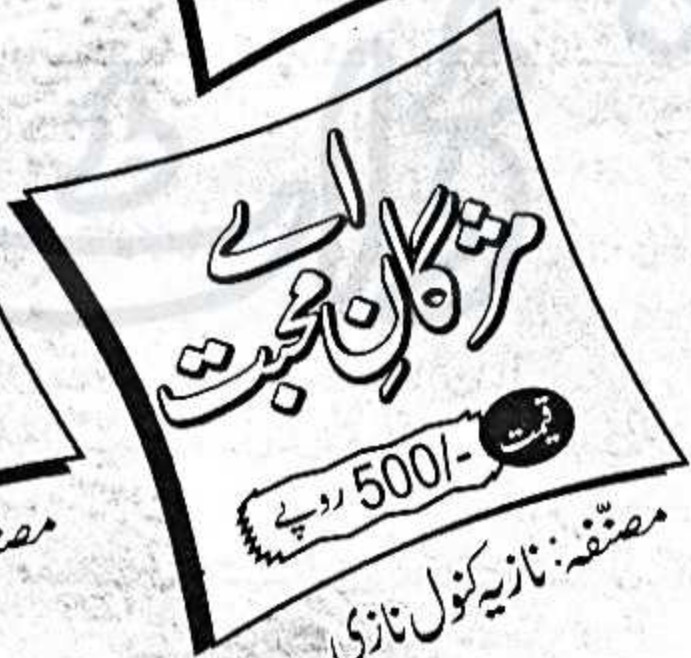 اے
مژگانِ محبت
قیمت -/500 روپے
مصنّفہ: نازیہ کنول نازی